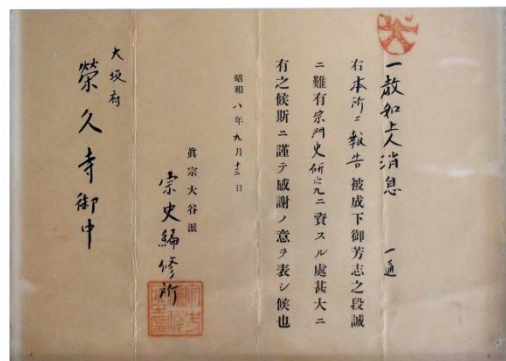 一教如上人消息 一通
右本所ニ報告被成下御芳志之段誠
ニ難有宗門史研究ニ資スル處甚大ニ
有之候斯ニ謹テ感謝ノ意ヲ表シ候也
昭和八年九月十二日
眞宗大谷派
宗史編修所
大坂府
榮久寺御中